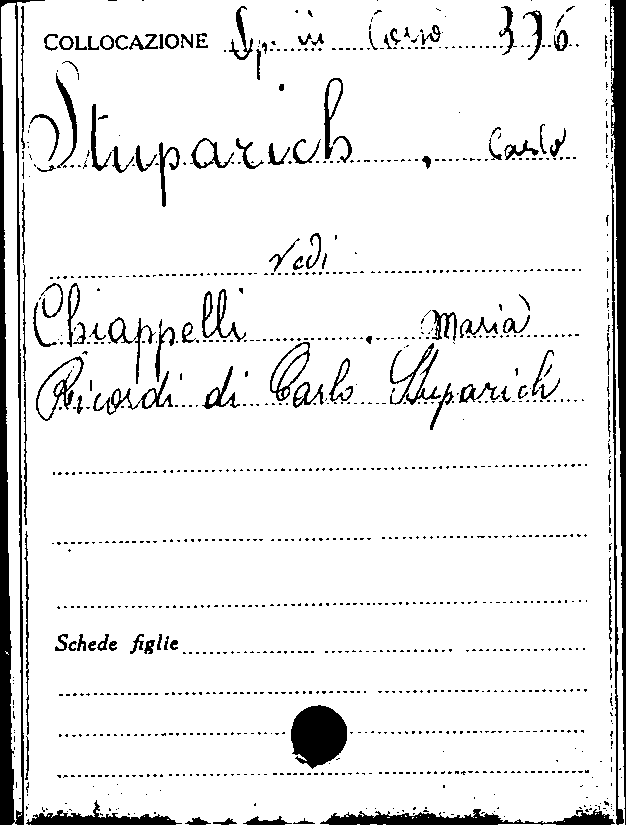 COLLOCAZIONE Sp. in Corso 336
Stuparich, Carlo
vedi
Chiappelli, Maria
Ricordi di Carlo Stuparich
Schede figlie